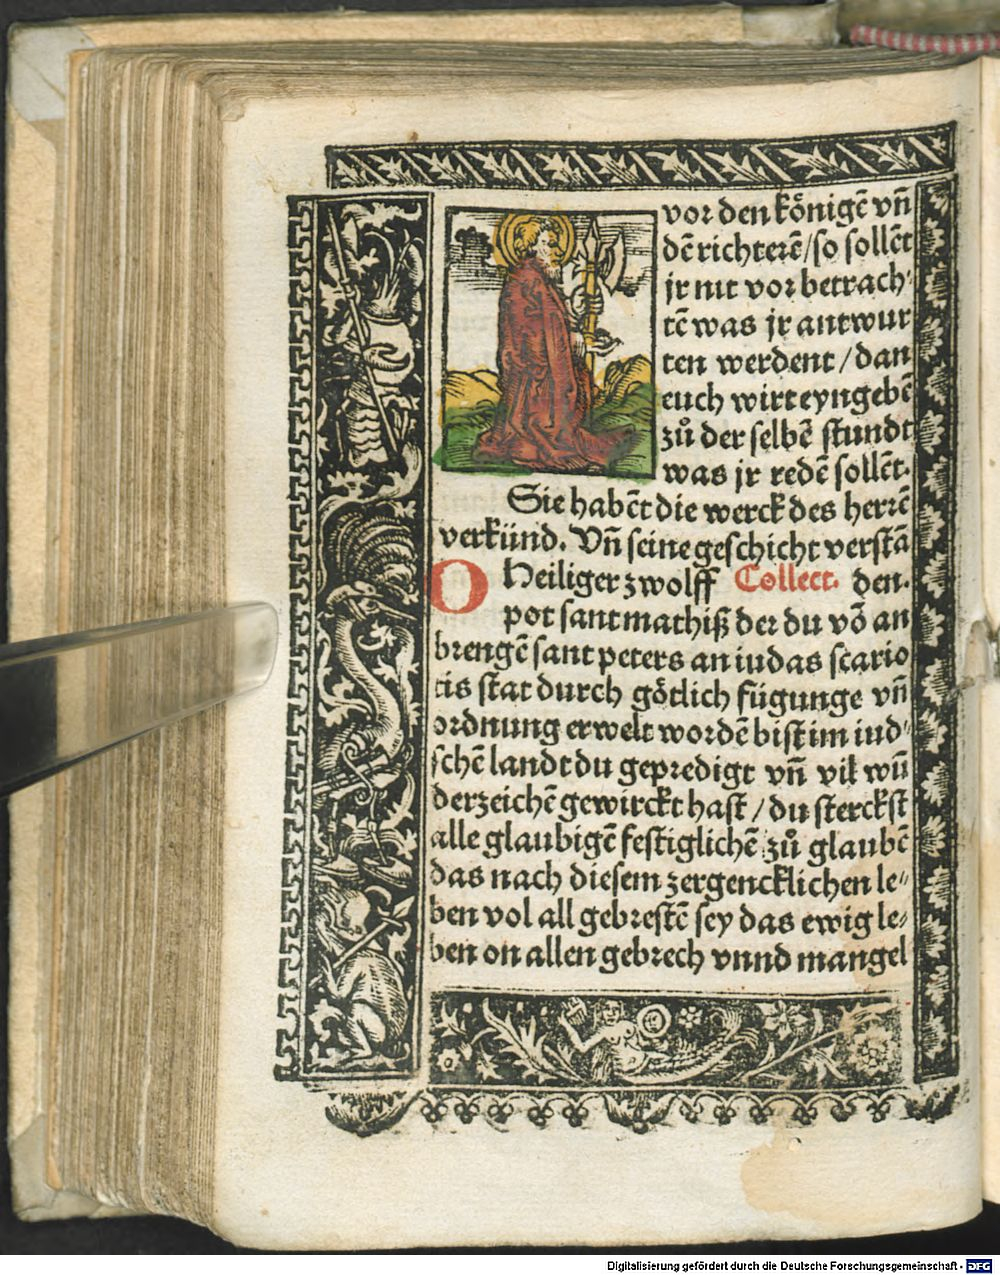 vor den kőnigē vñ
dē richterē/so sollēt
jr nit vor betrach⸗
tē was jr antwur
ten werdent/dan
euch wirt eyngebē
zů der selbē stundt
was jr redē sollēt.
Sie habēt die werck des herrē
verkünd. Vñ seine geschicht verstā
O Heiliger zwolff Collect. den.
pot sant mathiß der du vō an
brengē sant peters an iudas scario
tis stat durch gőtlich fügunge vñ
ordnung erwelt wordē bist im iud⸗
schē landt du gepredigt vñ vil wū
derzeichē gewirckt hast/du sterckst
alle glaubigē festiglichē zů glaubē
das nach diesem zergencklichen le⸗
ben vol all gebrestē sey das ewig le⸗
ben on allen gebrech vnnd mangel
Digitalisierung gefördert durch die Deutsche Forschungsgemeinschaft - DFG